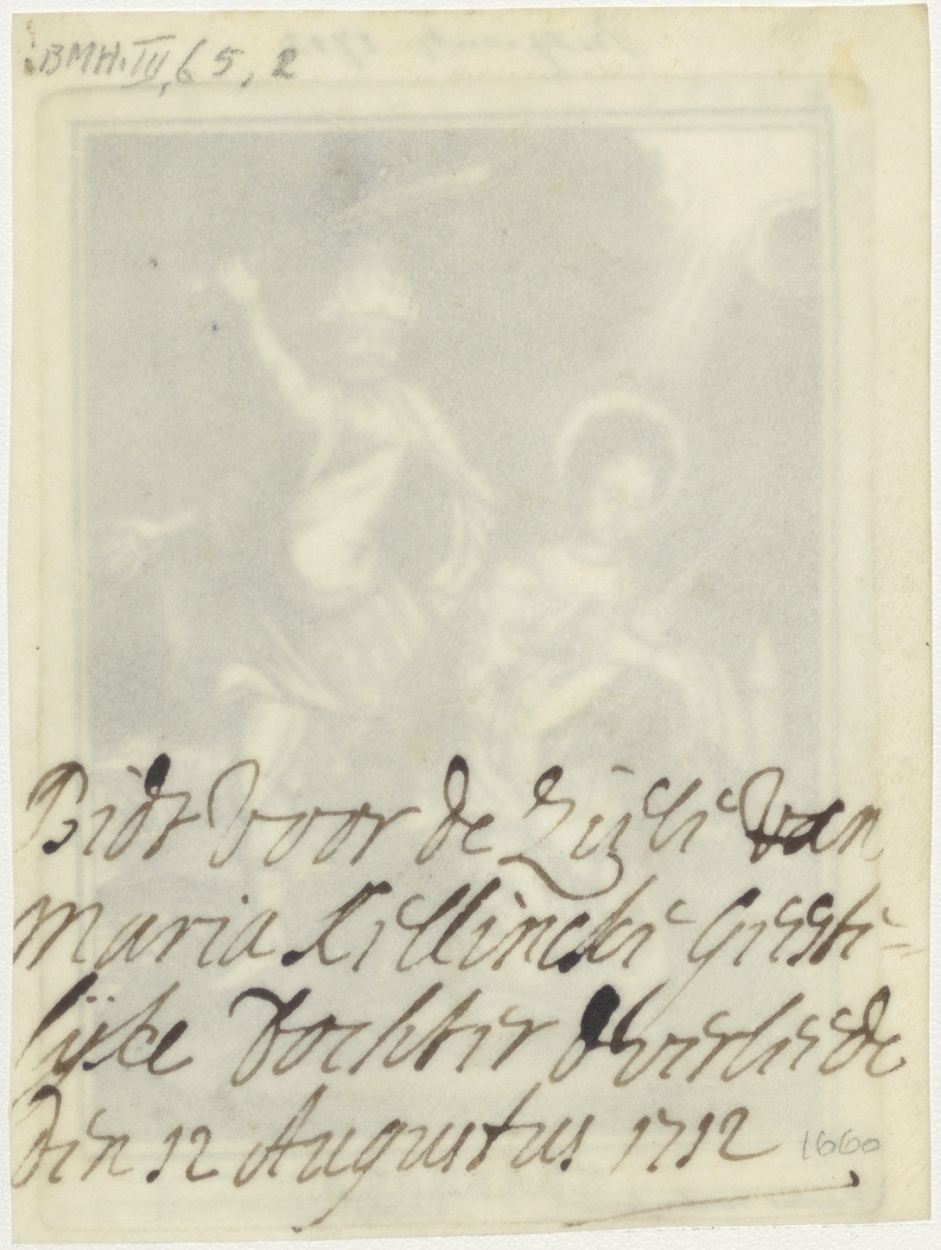 BMH.III, 65, 2
Bidt voor de Ziele van
Maria Killincke Geeste=
lijke dochter Overleede
den 12 Augustus 1712
1660